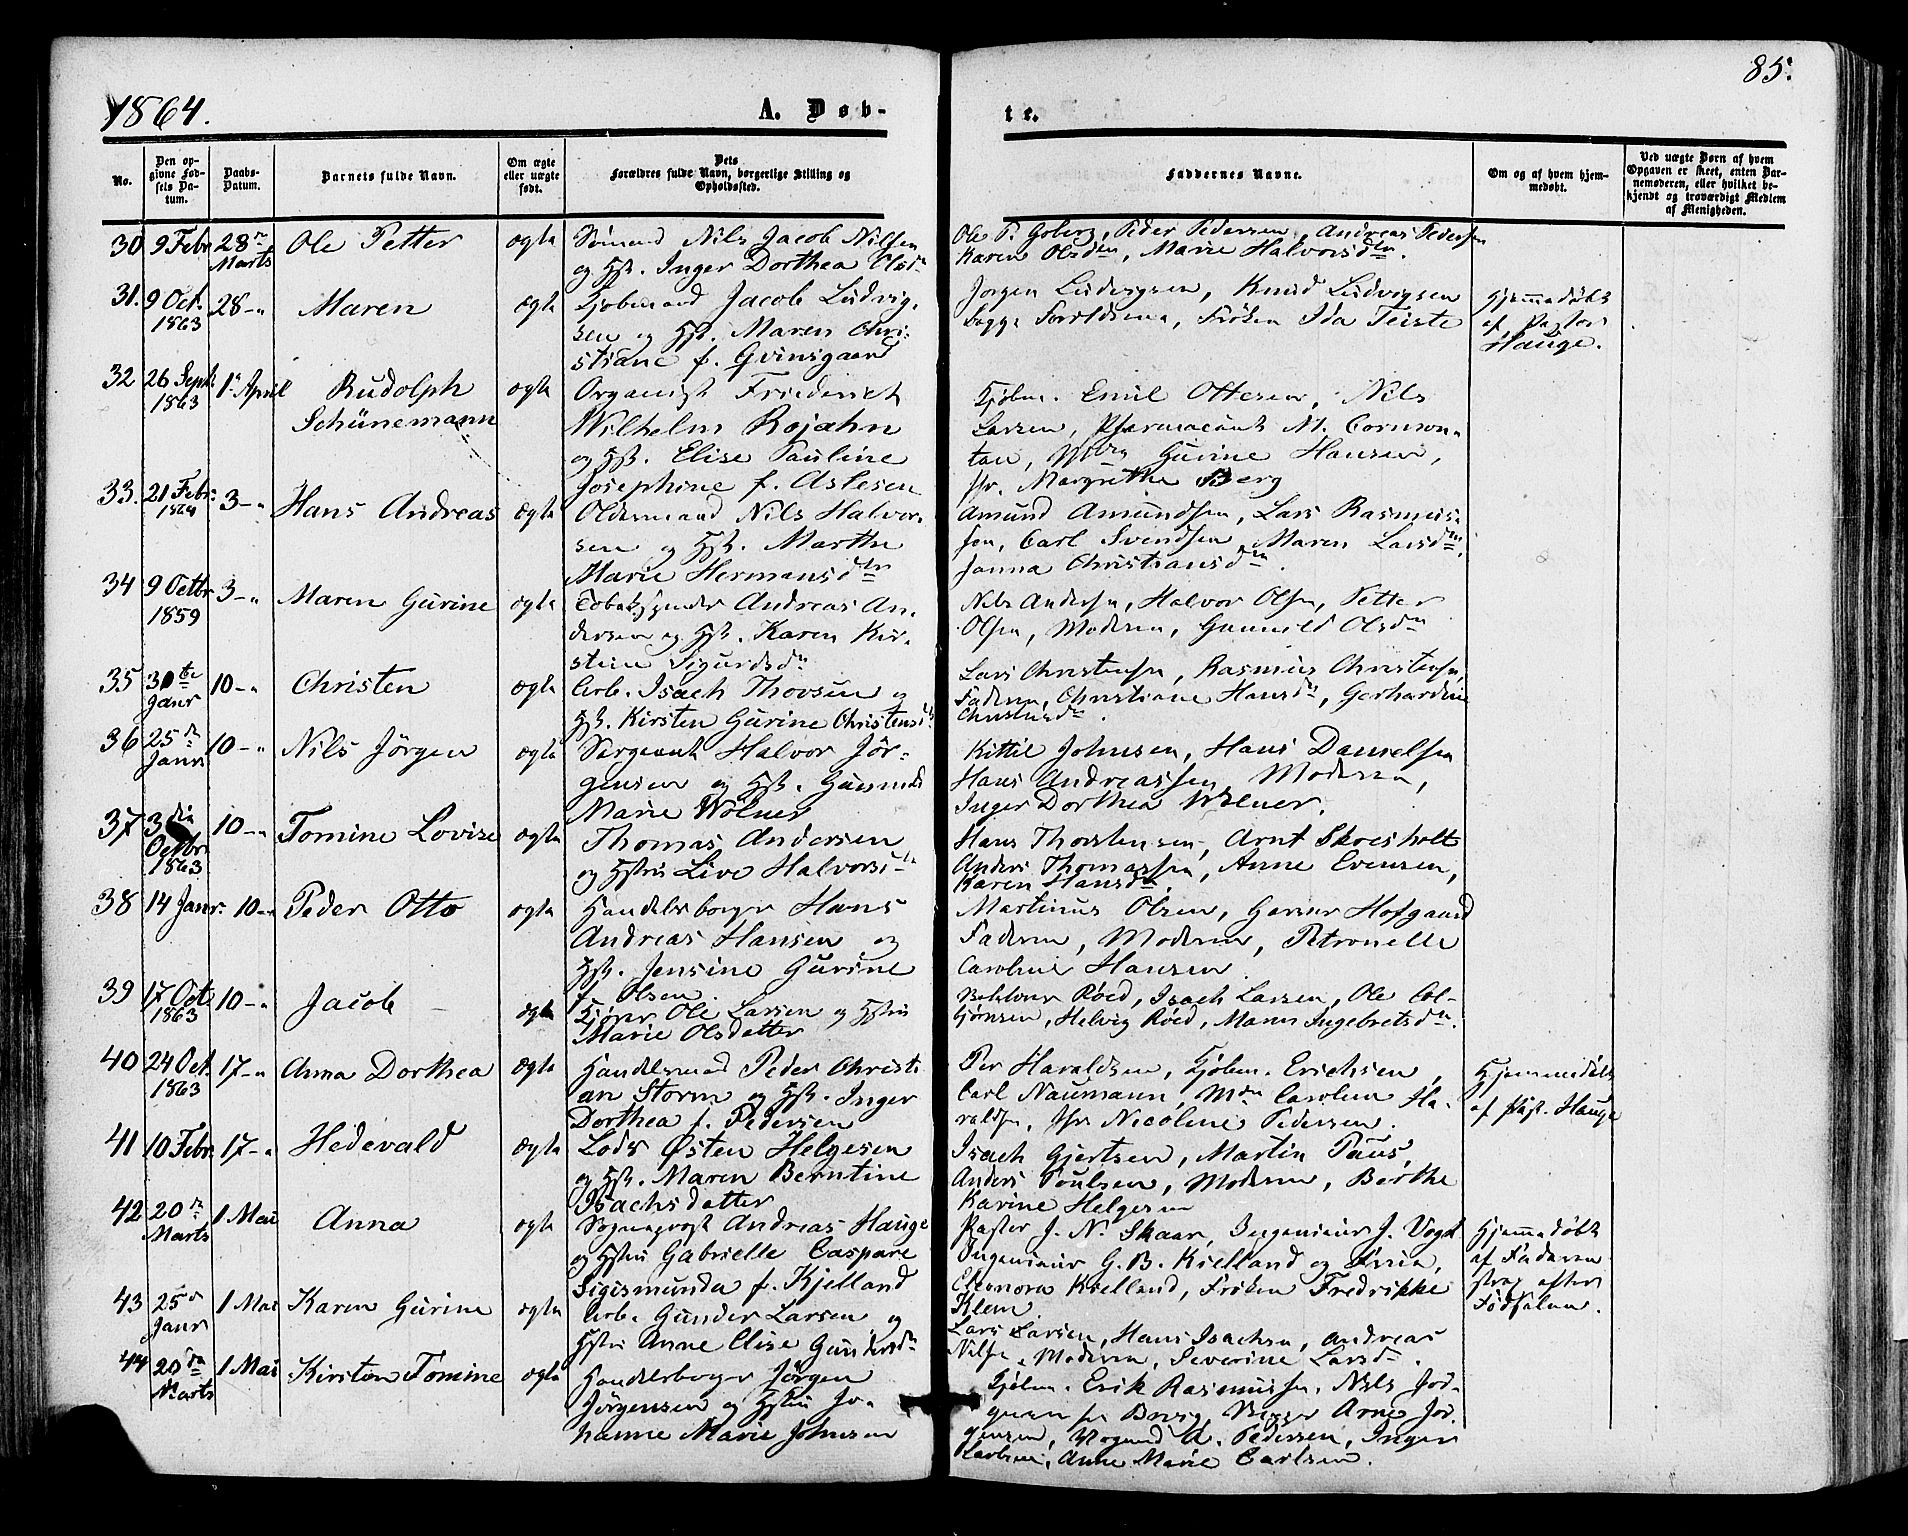 1864.
A. Døb-
te.
85.
No.
Den opgivne Fødsels Datum.
Daabs-Datum.
Barnets fulde Navn.
Om ægte eller uægte født.
Dets Forældres fulde Navn, borgerlige Stilling og Opholdssted.
Faddernes Navne.
Om og af hvem hjemmedøbt.
Ved uægte Børn af hvem Opgaven er skeet, enten Barnemoderen, eller hvilket bekjendt og troværdigt Medlem af Menigheden.
30 9 Febr 28de Marts Ole Petter ægte
Sømand Nils Jacob Nilsen
og Hst. Inger Dorthea Olsdtr
Ole P. Goberg, Peder Pedersen, Andreas Pedersen
Karen Olsdtr, Marie Halvorsdtr.
31. 9 Oct. 1863 28-" Maren ægte
Kjøbmand Jacob Ludvig-
sen og Hst. Maren Chri-
stiane f. Qvinsgaard
Jørgen Ludvigsen, Knud Ludvigsen
Frøken Ida Teiste
Hjemmedøbt
af Pastor
Hauge.
32 26 Sept. 1863 1ste April Rudolph
Schünemann ægte
Organist Friederich
Wilhelm Rojahn
og Hst. Elise Pauline
Josephine f. Aslesen
Kjøbm. Emil Ottesen, Nils
Larsen, Pharmaceut M.
Gurine Hansen,
Margrethe Berg
33. 21 Febr. 1864 3-" Hans Andreas ægte
Oldermand Nils Halvor-
sen og Hst. Marthe
Marie Hermansdtr
Amund Amundsen, Lars Rasmus-
sen, Carl Svendsen, Maren Larsdtr.
Janna Christiansdtr.
34 9 Octbr 1859 3-" Maren Gurine ægte
Tobaksspinder Andreas An-
dersen og Hst. Karen Kir-
stine Sigurdsdtr
Nils Andersen, Halvor Olsen, Petter
Olsen, Moderen, Gunnild Olsdtr
35 30te Janr 10-" Christen ægte
Arb. Isach Thovsen og
Hst. Kirsten Gurine Christensdtr
Lars Christensen, Rasmus Christensen,
Faderen, Christiane Hansdtr, Gerhardine
Christensdtr.
36 25de Janr 10-" Nils Jörgen ægte
Sergeant Halvor Jör-
gensen og Hst. Gunnild
Marie Wölner
Kittil Johnsen, Hans Danielsen
Hans Andreassen, Moderen,
Inger Dorthea Wölner.
37 3die Octbr 1863 10-" Tomine Lovise ægte
Thomas Andersen
og Hstru Live Halvorsdtr
Hans Thorstensen, Arnt Skresholt
Anders Thomassen, Anne Evensen,
Karen Hansdtr.
38 14 Janr. 10-" Peder Otto ægte
Handelsborger Hans
Andreas Hansen og
Hst. Jensine Gurine
f. Olsen.
Martinus Olsen, Gerner Hofgaard
Faderen, Moderen, Petronelle
Caroline Hansen.
39 17 Oct 1863 10-" Jacob ægte
Ole Larsen og Hstru
Marie Olsdatter
Røed, Isach Larsen, Ole Col-
bjønsen, Helvig Røed, Maren Ingebretsdtr.
40 24 Oct. 1863 17-" Anna Dorthea ægte
Handelsmand Peder Christi-
an Storm og Hst. Inger
Dorthea f. Pedersen
Per Haraldsen, Kjøbm. Erichsen,
Carl Naumann, Mdm Caroline Ha-
raldsen, Nicoline Pedersen.
Hjemmedøbt
af Past. Hauge
41 10 Febr. 17-" Hedevald ægte
Lods Østen Helgesen
og Hst. Maren Berntine
Isachsdatter
Isach Gjertsen, Martin Paus,
Anders Poulsen, Moderen, Berthe
Karine Helgesen
42 20de Marts 1 Mai Anna ægte
Sogneprest Andreas Hauge
og Hstru Gabrielle Caspare
Sigismunda f. Kjelland
Pastor J. N. Skaar, Ingenieur J. Vogt
Ingenieur G. B. Kielland og Frue,
Eleonora Kielland, Frøken Fredrikke
Klem.
Hjemmedøbt
af Faderen
strax efter
Fødselen.
43 25de Janr 1 Mai Karen Gurine ægte
Arb. Gunder Larsen og
Hstru Anne Elise Gundersdtr
Lars Larsen, Hans Isachsen, Andreas
Nilsen, Moderen, Severine Larsdtr.
44 20de Marts 1 Mai Kirsten Tomine ægte
Handelsborger Jörgen
Jörgensen og Hstru Jo-
hanne Marie Johnsen
Kjøbm. Erik Rasmussen, Nils Jör-
gensen fra Brevig, Arne Jör-
gensen, A. Pedersen, Inger
Anne Marie Carlsen.